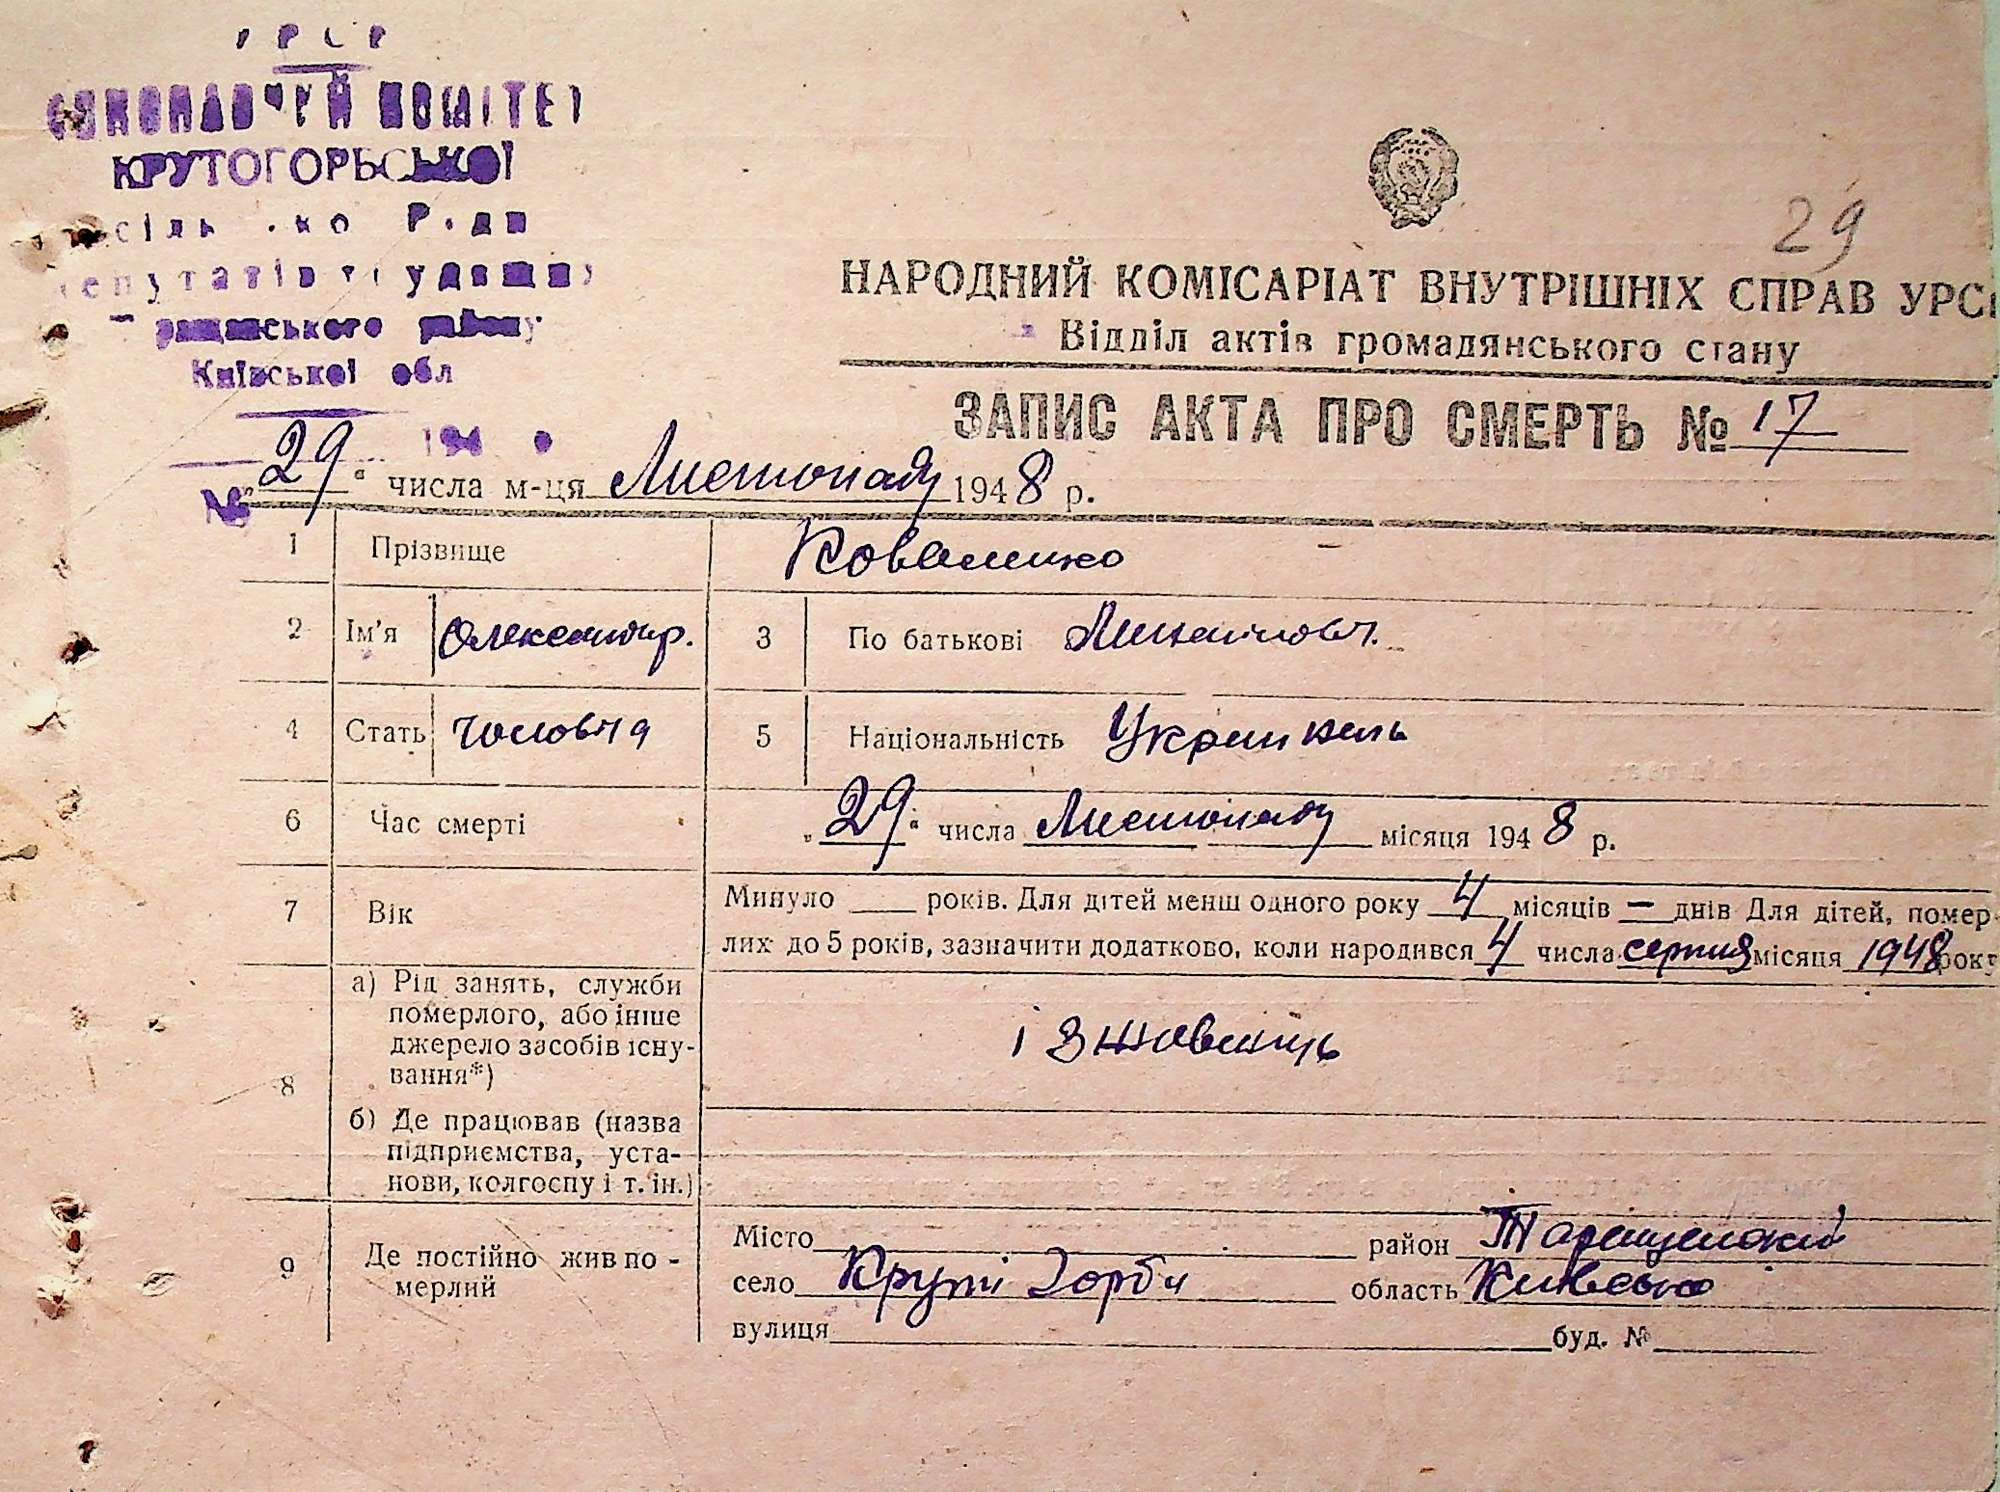 УРСР
ВИКОНАВЧИЙ КОМІТЕТ
КРУТОГОРЬСЬКОЇ
Ради
депутатів трудящих
району
Київської обл
194
№
29
НАРОДНИЙ КОМІСАРІАТ ВНУТРІШНІХ СПРАВ УРСР
Відділ актів громадянського стану
ЗАПИС АКТА ПРО СМЕРТЬ № 17
„29“ числа м-ця Листопаду 1948 р.
1 Прізвище Коваленко
2 Ім'я Олександр. 3 По батькові
4 Стать 5 Національність
6 Час смерті „29“ числа Листопаду місяця 1948 р.
7 Вік Минуло ___ років. Для дітей менш одного року 4 місяців — днів Для дітей, помер-
лих до 5 років, зазначити додатково, коли народився 4 числа серпня місяця 1948 року
8 а) Рід занять, служби
померлого, або інше
джерело засобів існу-
вання*)
б) Де працював (назва
підприємства, уста-
нови, колгоспу і т. ін.)
9 Де постійно жив по-
мерлий
Місто район Таращанський
село Круті Горби область Київська
вулиця буд. №